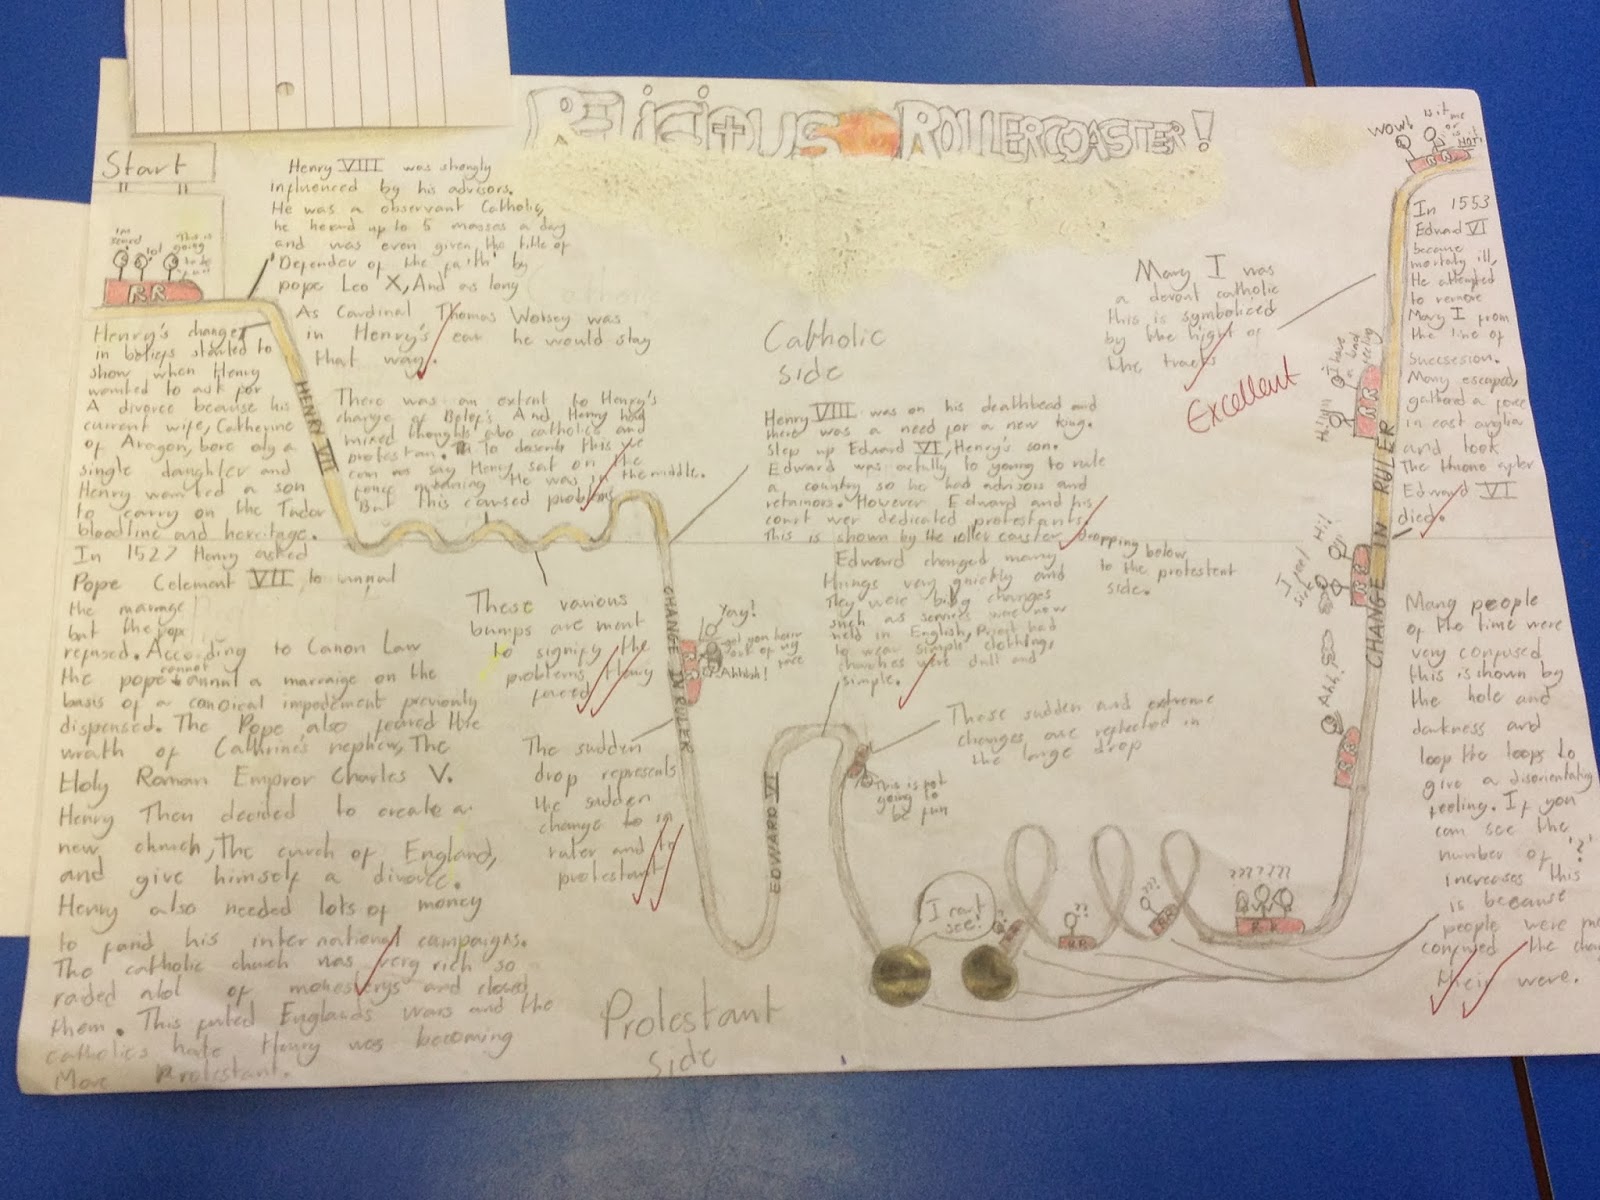 RELIGIOUS ROLLERCOASTER!
Start
I'm
scared
lol
This is
going
to be
fun
RR
Henry VIII was strongly
influenced by his advisors.
He was a observant Catholic,
he heard up to 5 masses a day
and was even given the title of
'Defender of the faith' by
pope Leo X, And as long
As Cardinal Thomas Wolsey was
in Henry's ear he would stay
that way.
Henry's change
in beliefs started to
show when Henry
wanted to ask for
A divorce because his
current wife, Catherine
of Aragon, bore only a
single daughter and
Henry wanted a son
to carry on the Tudor
bloodline and heritage.
In 1527 Henry asked
Pope Celement VII to
the marrage
but the pope
refused. According to Canon Law
the pope cannot annul a marraige on the
basis of a canoical impediment previously
dispensed. The Pope also feared the
wrath of Cathrine's nephew, The
Holy Roman Empror Charles V.
Henry Then decided to create a
new church, The curch of England,
and give himself a divorce.
Henry also needed lots of money
to fund his international campaigns.
The catholic church was very rich so
raded alot of monesterys and closed
them. This fueled Englands wars and the
catholics hate Henry was becoming
More Protestant.
HENRY VII
There was an extent to Henry's
change of Beleifs And Henry had
mixed thoughts abo catholics and
protestan. To describ this we
can say Henry sat on the
fence meaning He was in the middle.
But This caused problems
These various
bumps are ment
to signify the
problems Henry
faced
CHANGE IN RULER
Yay!
get you hair
out of my
face
Ahhhh!
RR
The sudden
drop represents
the sudden
change to in
ruler and to
protestant
Catholic
side
Henry VIII was on his deathbead and
there was a need for a new king.
Step up Edward VI, Henry's son.
Edward was actully to young to rule
a country so he had advisors and
retainors. However Edward and his
court wer dedicated protestants.
This is shown by the roller coaster dropping below
to the protestent
side.
Edward changed many
things very quickly and
They were big changes
such as services were now
held in English, Priest had
to wear simple clothing,
churches were dull and
simple.
EDWARD VI
These sudden and extreme
changes are reflected in
the large drop
This is not
going to
be fun
I can't
see!
??
RR
???
RR
??? ????
RR
Protestant
side
Mary I was
a devout catholic
this is symbolized
by the hight of
the tracks
Excellent
WOW!
is it
me
or
is it
HOT!
RR
In 1553
Edward VI
became
mortaly ill,
He attempted
to remove
Mary I from
the line of
succsesion.
Mary escaped,
gathered a force
in east anglia
and took
The throne after
Edward VI
died.
I have
a bad
feeling
Hi!
RR
CHANGE IN RULER
Hi!
I feel
sick
RR
Ahh!
RR
Many people
of the time were
very confused
this is shown by
the hole and
darkness and
loop the loops to
give a disorientating
feeling. If you
can see the
number of '?'
increases this
is because
people were
confused the
their were.